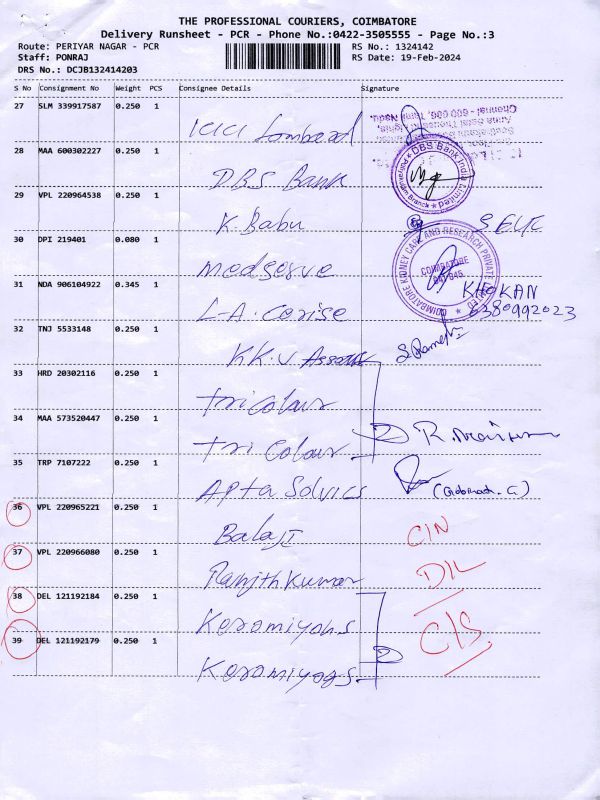 THE PROFESSIONAL COURIERS, COIMBATORE
Delivery Runsheet - PCR - Phone No.:0422-3505555 - Page No.:3
Route: PERIYAR NAGAR - PCR
RS No.: 1324142
Staff: PONRAJ
RS Date: 19-Feb-2024
DRS No.: DCJB132414203
S No Consignment No Weight PCS Consignee Details Signature
27 SLM 339917587 0.250 1
ICICI Lombard
Chennai - 600 006, Tamil Nadu.
28 MAA 600302227 0.250 1
DBS Bank
DBS Bank India Limited
29 VPL 220964538 0.250 1
K. Babu
SELF
30 DPI 219401 0.080 1
medserve
COIMBATORE KIDNEY CARE AND RESEARCH PRIVATE LIMITED
COIMBATORE
641 045
31 NDA 906104922 0.345 1
L-A. Corise
KHOKAN
6380992023
32 TNJ 5533148 0.250 1
KK.V
S. Ramesh
33 HRD 20302116 0.250 1
Tricolour
34 MAA 573520447 0.250 1
Tri Colour
35 TRP 7107222 0.250 1
Apta Solvics
36 VPL 220965221 0.250 1
Balaji
CIN
37 VPL 220966080 0.250 1
Ranjith Kumar
D/L
38 DEL 121192184 0.250 1
Keromiyohs
C/S
39 DEL 121192179 0.250 1
Keromiyogs